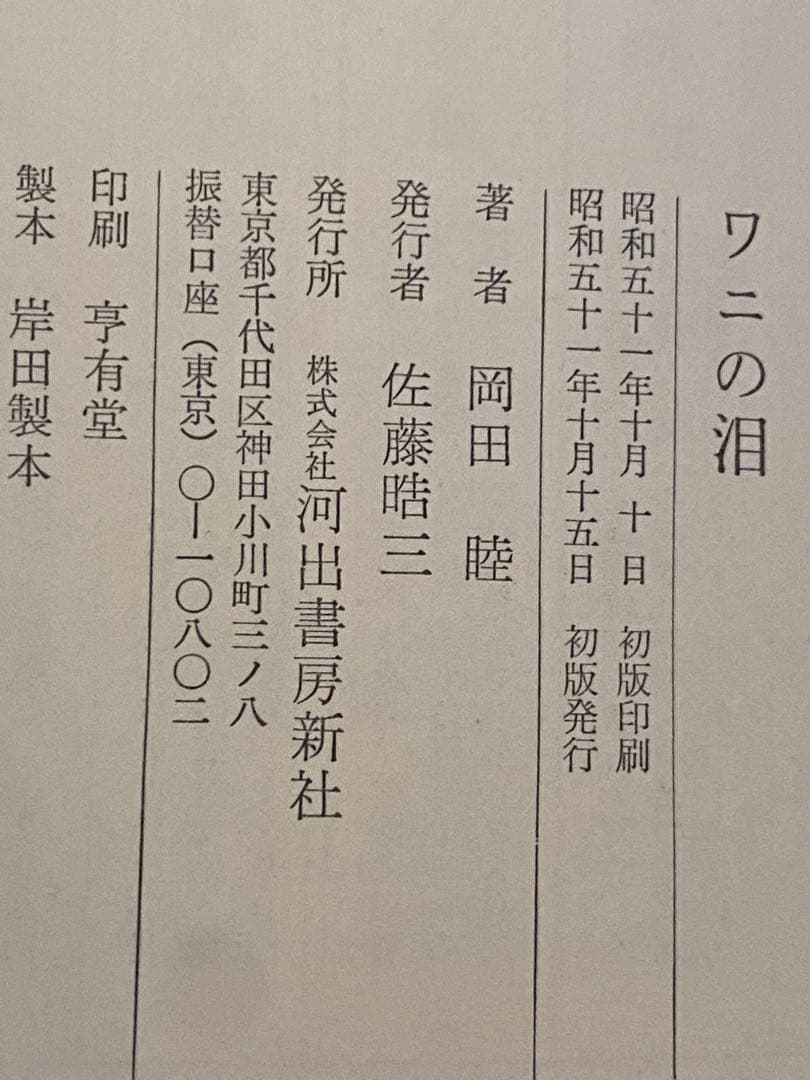 ワニの泪
昭和五十一年十月 十 日 初版印刷
昭和五十一年十月十五日 初版発行
著 者 岡田 睦
発行者 佐藤晧三
発行所 株式会社河出書房新社
東京都千代田区神田小川町三ノ八
振替口座（東京）〇―一〇八〇二
印刷 亨有堂
製本 岸田製本